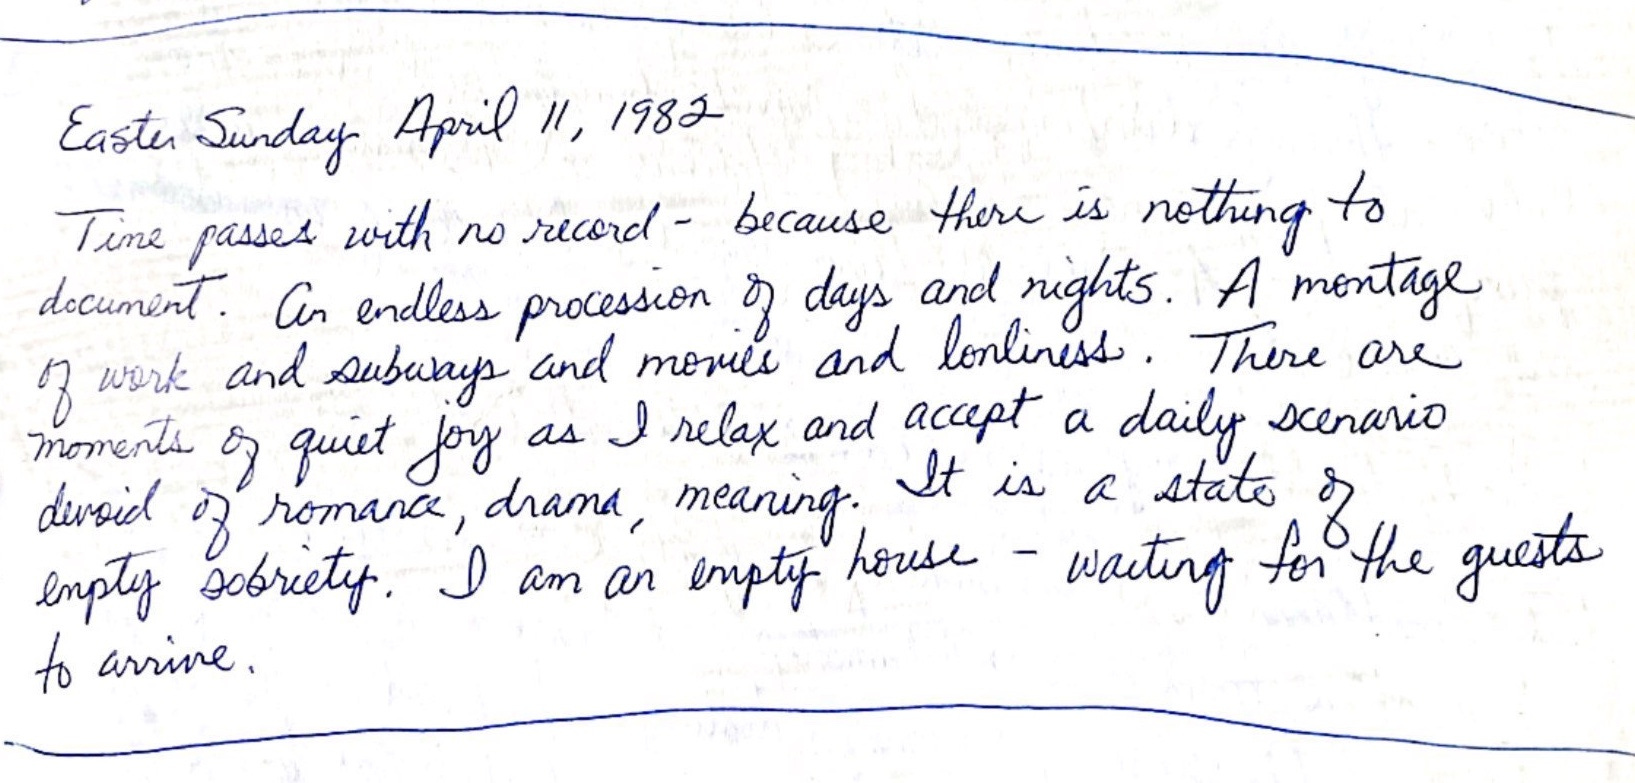 Easter Sunday April 11, 1982
Time passes with no record - because there is nothing to
document. An endless procession of days and nights. A montage
of work and subways and movies and lonliness. There are
moments of quiet joy as I relax and accept a daily scenario
devoid of romance, drama, meaning. It is a state of
empty sobriety. I am an empty house - waiting for the guests
to arrive.